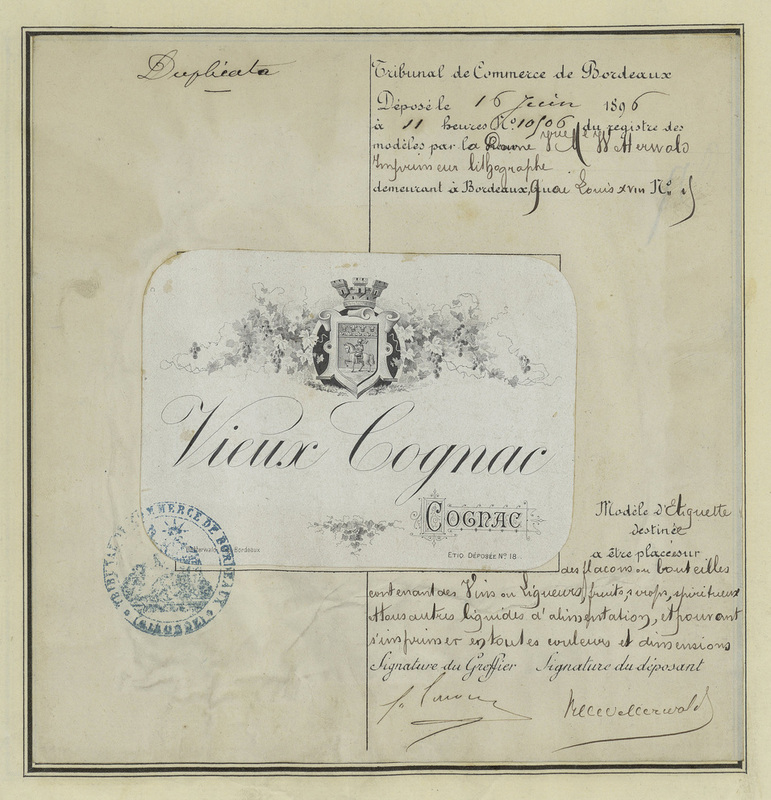 Duplicata
Tribunal de Commerce de Bordeaux
Déposé le 16 Juin 1896
à 11 heures No. 10506 du registre des
modèles par la Vve Wetterwald
Imprimeur lithographe
demeurant à Bordeaux, Quai Louis XVIII No.
Vieux Cognac
COGNAC
Wetterwald Bordeaux
ETIQ. DÉPOSÉE No. 18
TRIBUNAL DE COMMERCE DE BORDEAUX
(GIRONDE)
Modèle d'Etiquette
destinée
a être placée sur
des flacons ou bouteilles
contenant des Vins ou Liqueurs, fruits, sirops, spiritueux
et tous autres liquides d'alimentation, et pouvant
s'imprimer en toutes couleurs et dimensions
Signature du Greffier Signature du déposant
Vve Wetterwald